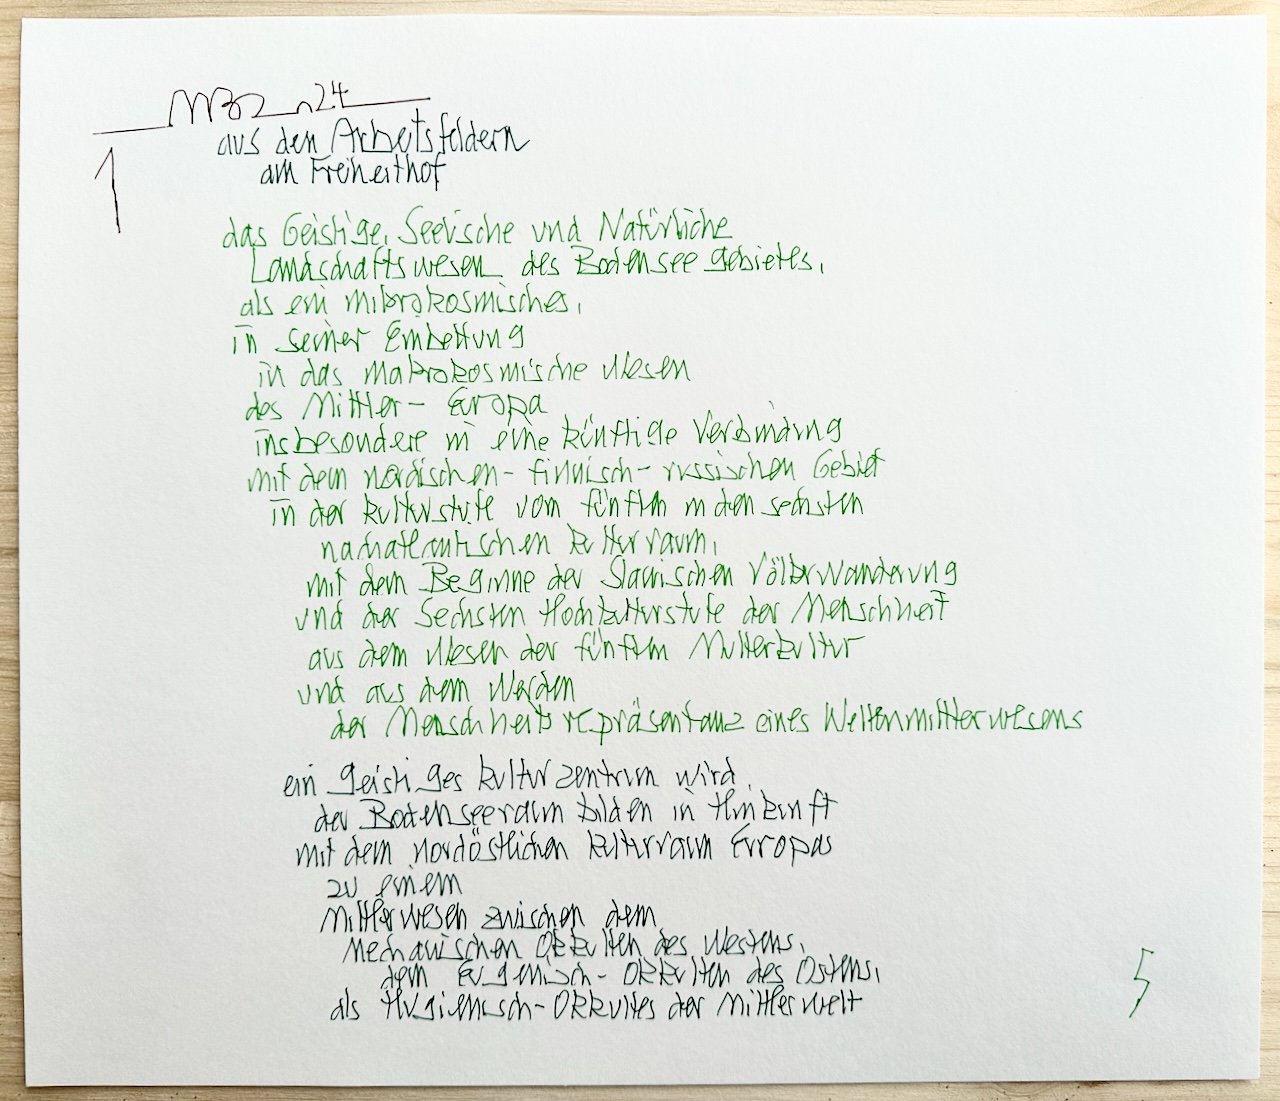 24
aus den Arbeitsfeldern
1
am Freiheithof
das Geistige, Seelische und Natürliche
Landschaftswesen des Bodenseegebietes,
als ein mikrokosmisches,
in seiner Einbettung
in das makrokosmische Wesen
des Mittler- Europa
insbesondere in eine künftige Verbindung
mit dem nordischen- finnisch- russischen Gebiet
in der Kulturstufe vom fünften in den sechsten
nachatlantischen Kulturraum,
mit dem Beginne der Slawischen Völkerwanderung
und der Sechsten Hochkulturstufe der Menschheit
aus dem Wesen der fünften Mutterkultur
und aus dem Werden
der Menschheitsrepräsentanz eines Weltenmittlerwesens
ein geistiges Kulturzentrum wird
der Bodenseeraum bilden in Hinkunft
mit dem nordöstlichen Kulturraum Europas
zu einem
Mittlerwesen zwischen dem
Mechanischen Okkulten des Westens,
dem Eugenisch- Okkulten des Ostens,
als Hygienisch-Okkultes der Mittlerwelt
5